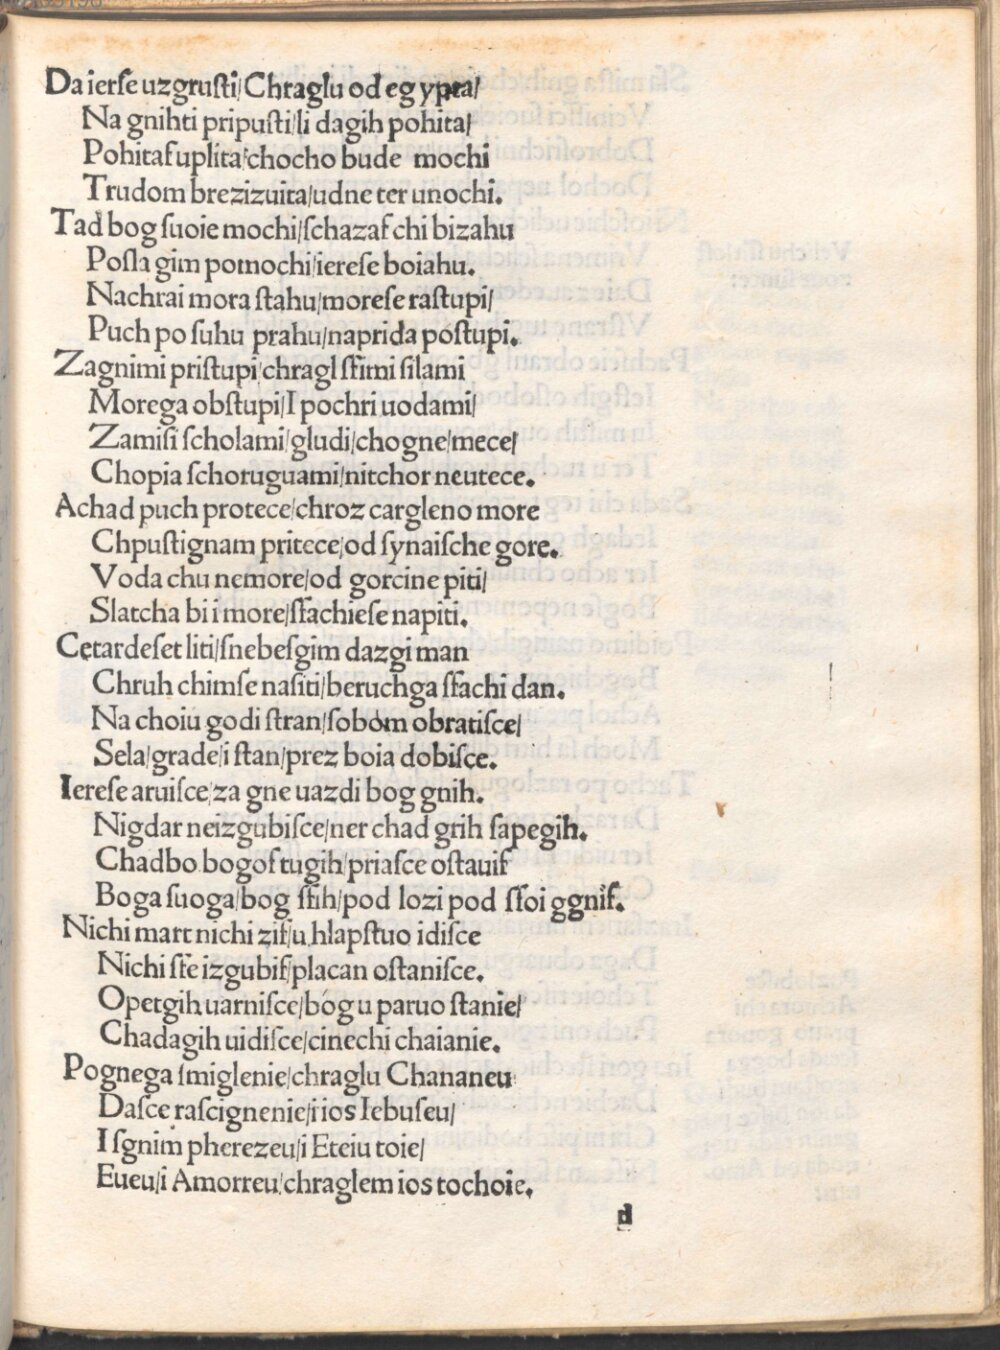 Da ierſe uzgruſti/Chraglu od egypta/
Na gnihti pripuſti/li dagih pohita/
Pohitaſuplita/chocho bude mochi
Trudom brezizuita/udne ter unochi.
Tad bog ſuoie mochi/ſchazaſ chi bizahu
Poſla gim pomochi/iereſe boiahu.
Nachrai mora ſtahu/moreſe raſtupi/
Puch po ſuhu prahu/naprida poſtupi.
Zagnimi priſtupi/chragl ſſimi ſilami
Morega obſtupi/I pochri uodami/
Zamiſi ſcholami/gludi/chogne/mece/
Chopia ſchoruguami/nitchor neutece.
Achad puch protece/chroz cargleno more
Chpuſtignam pritece/od ſynaiſche gore.
Voda chu nemore/od gorcine piti/
Slatcha bi i more/ſſachieſe napiti.
Cetardeſet liti/ſnebeſgim dazgi man
Chruh chimſe naſiti/beruchga ſſachi dan.
Na choiu godi ſtran/ſobom obratiſce/
Sela/grade/i ſtan/prez boia dobiſce.
Iereſe aruiſce/za gne uazdi bog gnih.
Nigdar neizgubiſce/ner chad grih ſapegih.
Chadbo bogoſ tugih/priaſce oſtauiſ
Boga ſuoga/bog ſſih/pod lozi pod ſſoi ggniſ.
Nichi mart nichi ziſ/u hlapſtuo idiſce
Nichi ſſe izgubiſ/placan oſtaniſce.
Opetgih uarniſce/bog u paruo ſtanie/
Chadagih uidiſce/cinechi chaianie.
Pognega ſmiglenie/chraglu Chananeu
Daſce raſcignenie/i ios Iebuſeu/
I ſgnim pherezeu/i Eteiu toie/
Eueu/i Amorreu/chraglem ios tochoie.
d